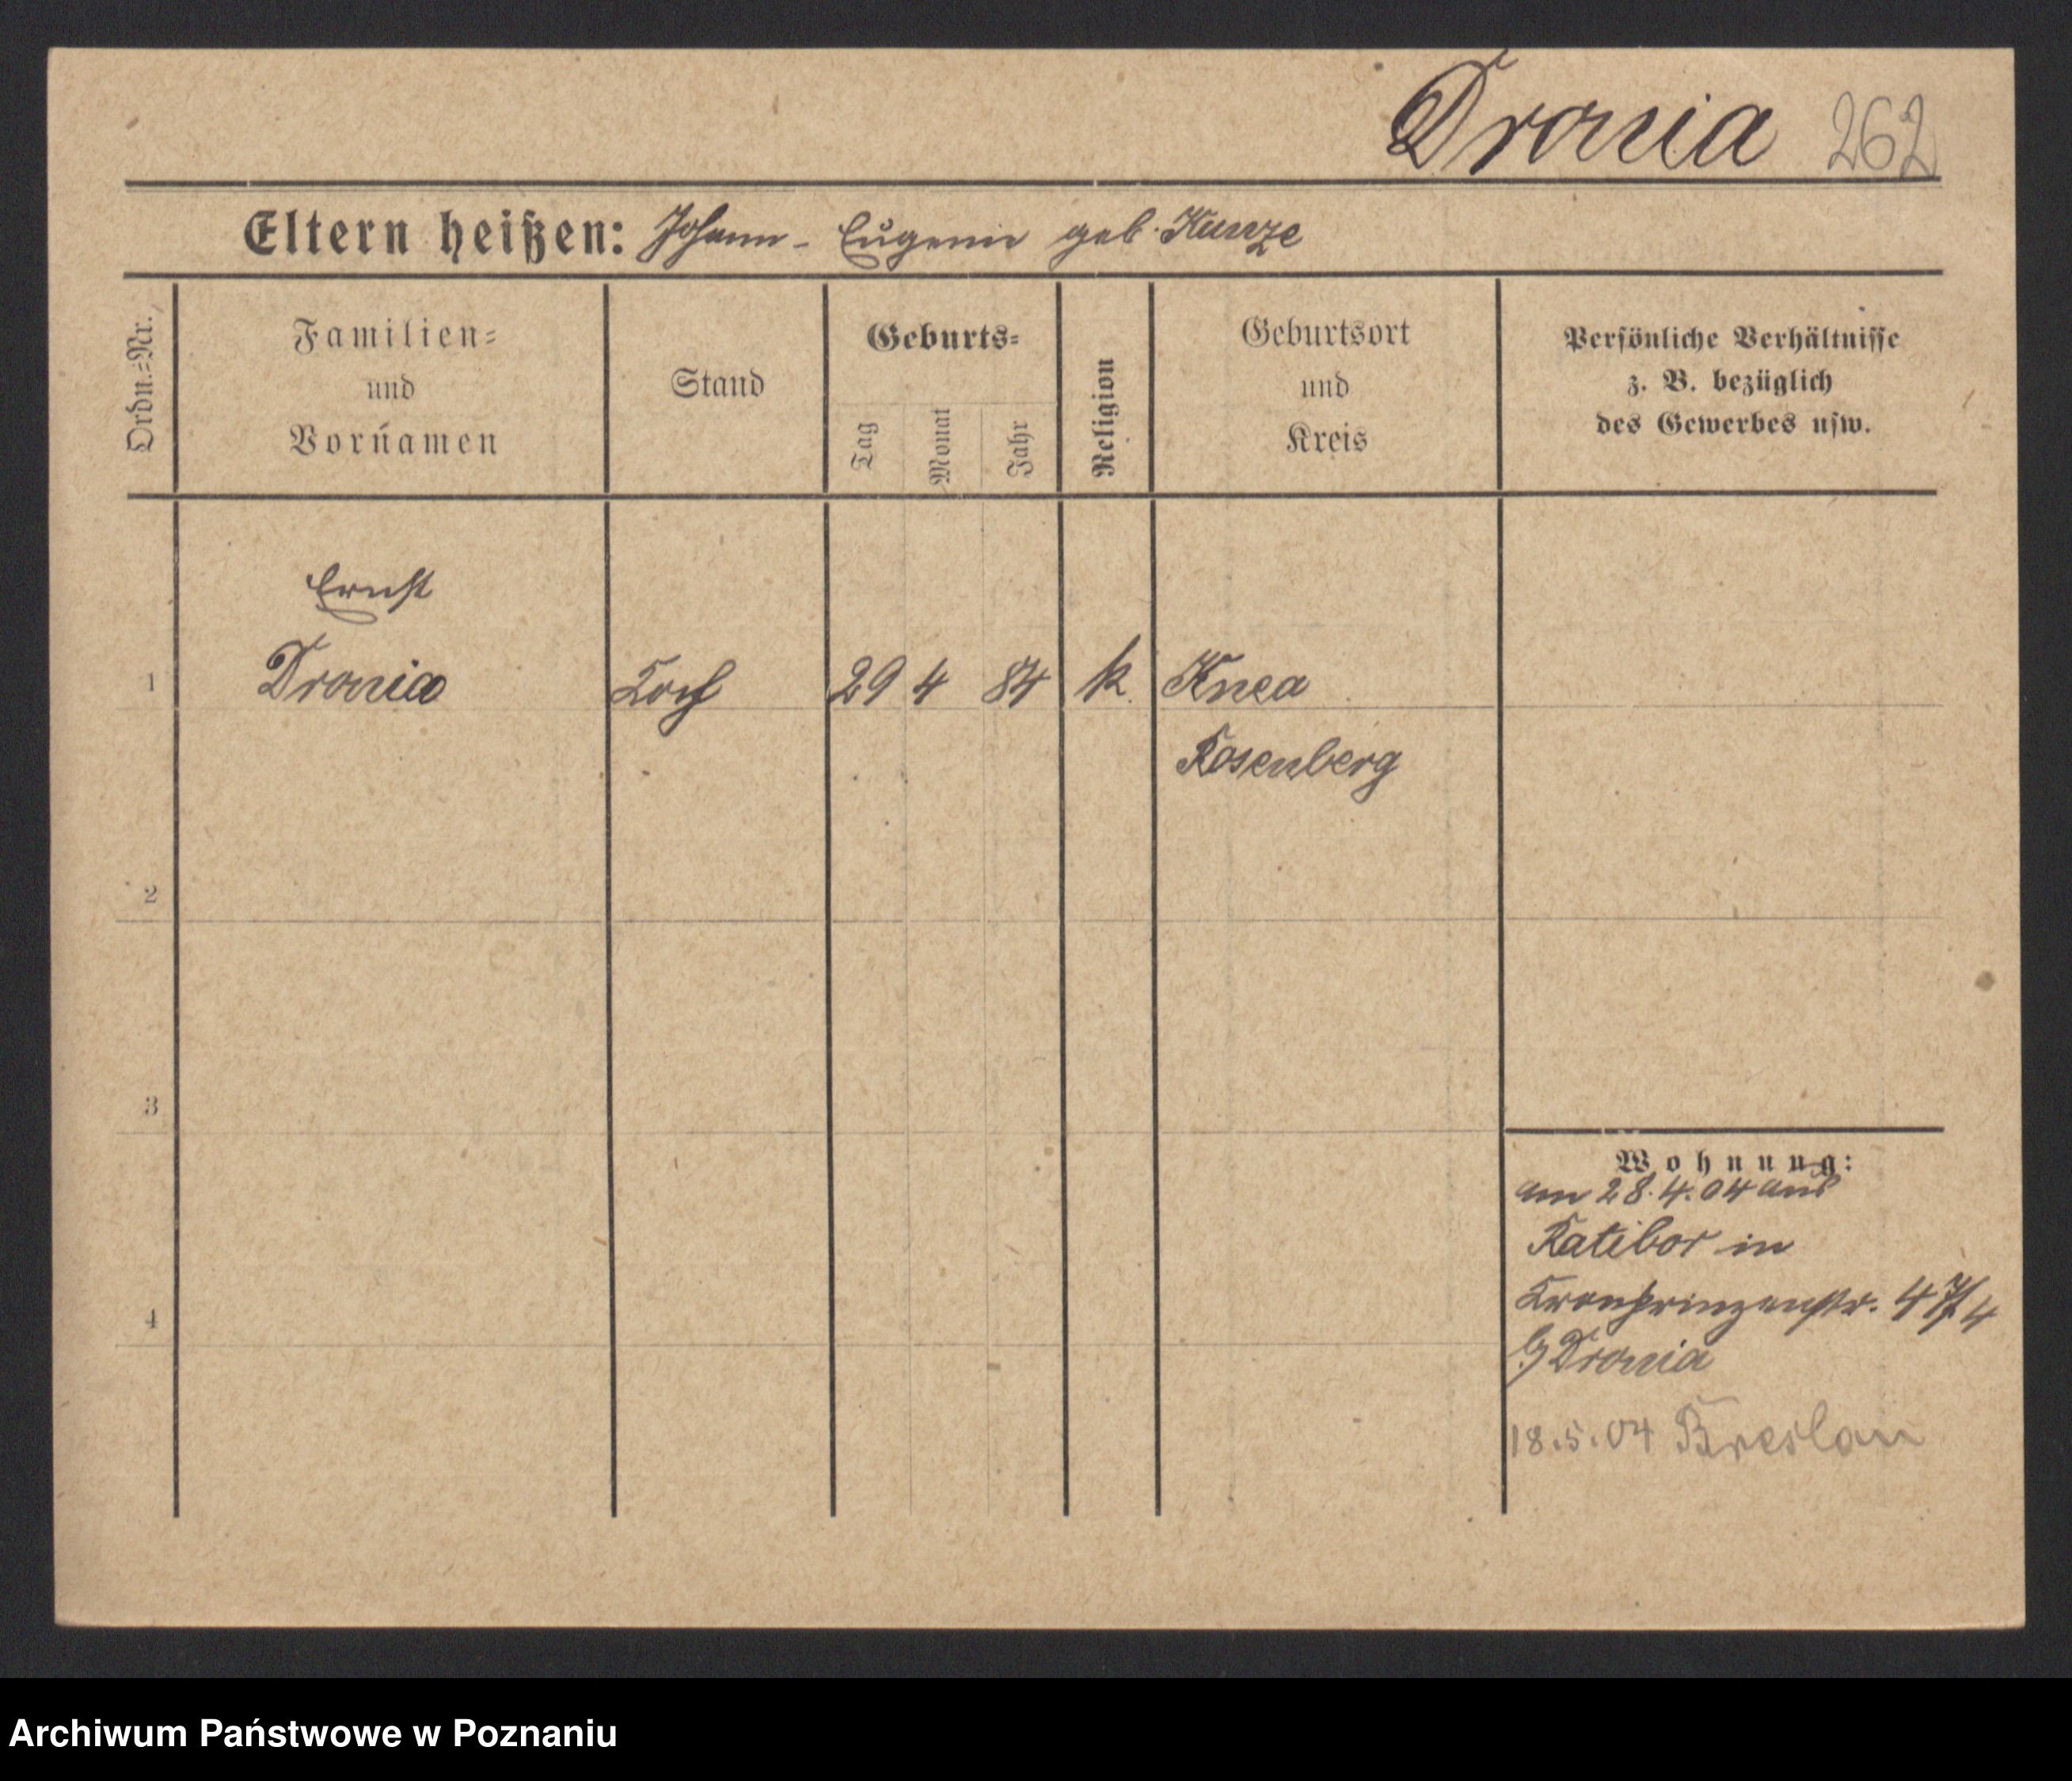 Dronia 262
Eltern heißen: Johann - Eugenie geb. Kunze
Ordn.=Nr.
Familien=
und
Vornamen
Stand
Geburts=
Tag
Monat
Jahr
Religion
Geburtsort
und
Kreis
Persönliche Verhältnisse
z. B. bezüglich
des Gewerbes usw.
Ernst
1 Dronia Koch 29 4 84 k Knea
Rosenberg
2
3
4
Wohnung:
am 28.4.04 aus
Ratibor in
Kronprinzenstr. 47/4
b/ Dronia
18.5.04 Breslau
Archiwum Państwowe w Poznaniu